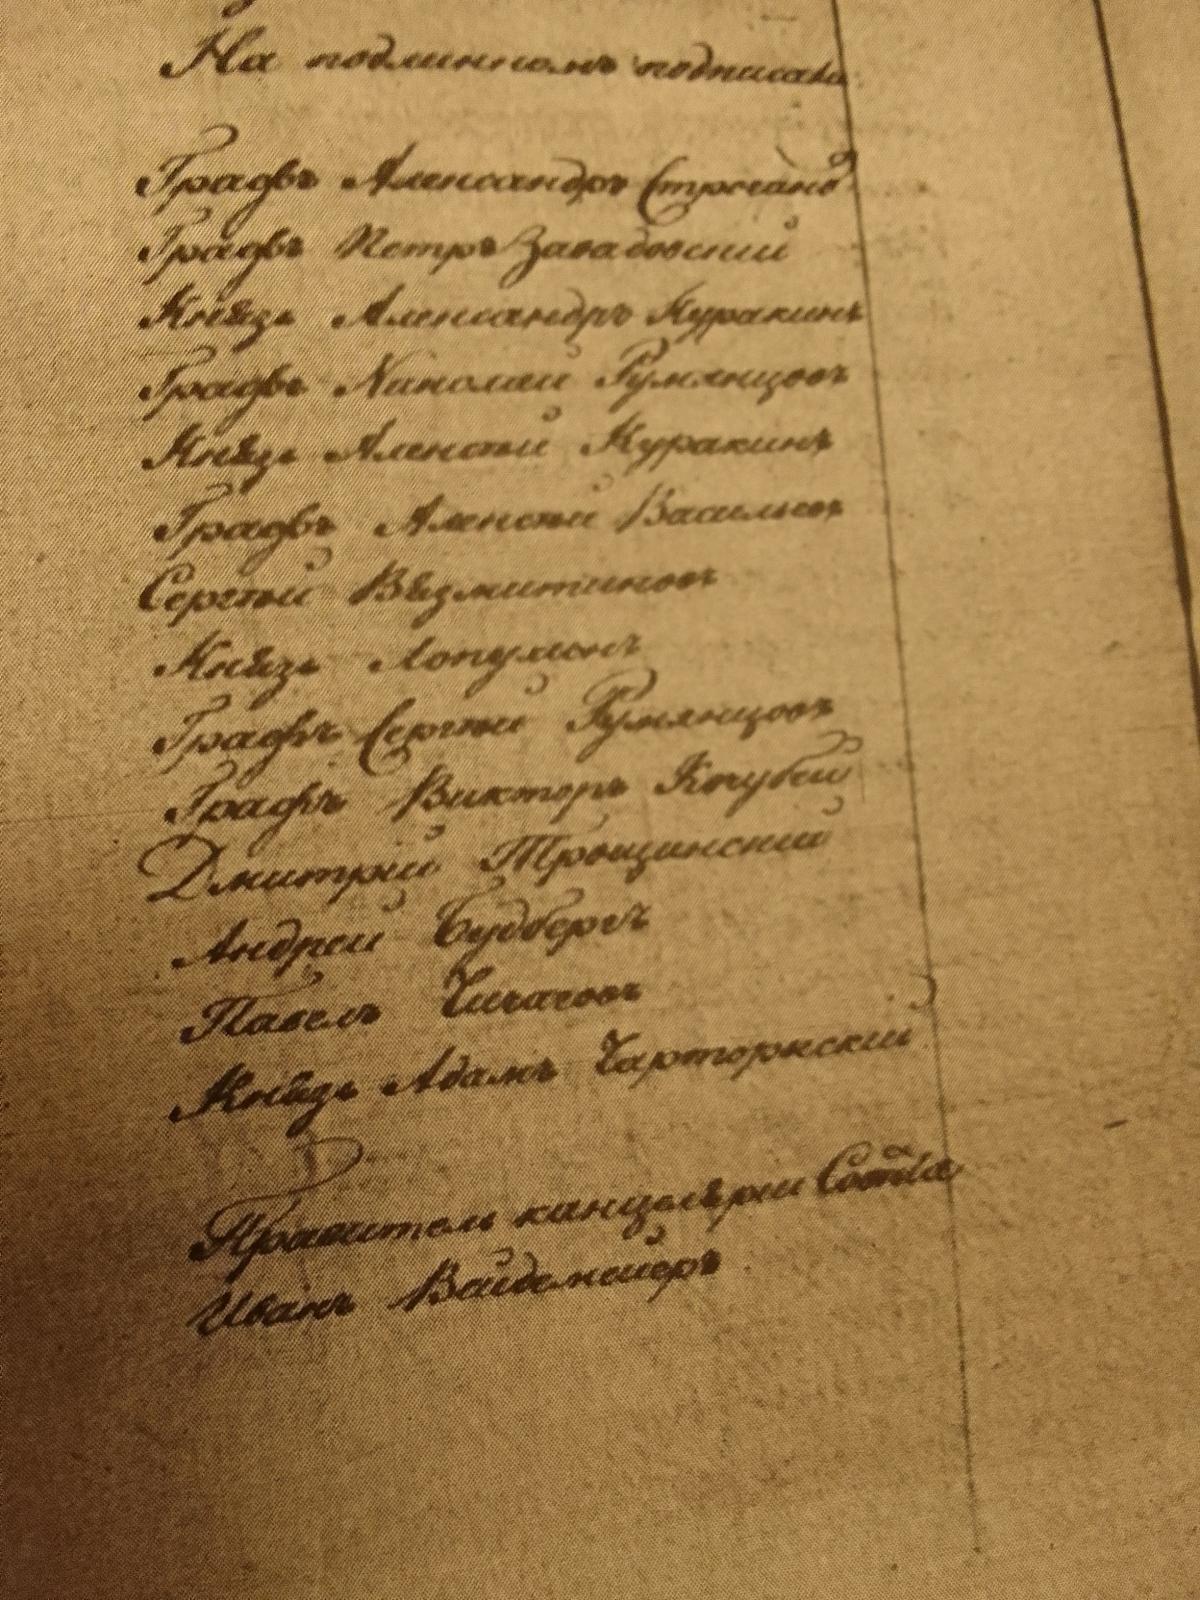 На подлинномъ подписали
Графъ Александръ Строганъ
Графъ Петръ Завадовский
Князь Александръ Куракинъ
Графъ Николаи Румянцовъ
Князь Алексѣй Куракинъ
Графъ Алексѣй Васильев
Сергѣй Вязмитиновъ
Князь Лопухинъ
Графъ Сергѣй Румянцовъ
Графъ Викторъ Кочубей
Дмитрій Трощинский
Андрей Будбергъ
Павелъ Чичаговъ
Князь Адамъ Чарторыский
Правитель канцелярии Совѣта
Иванъ Вайдемейеръ